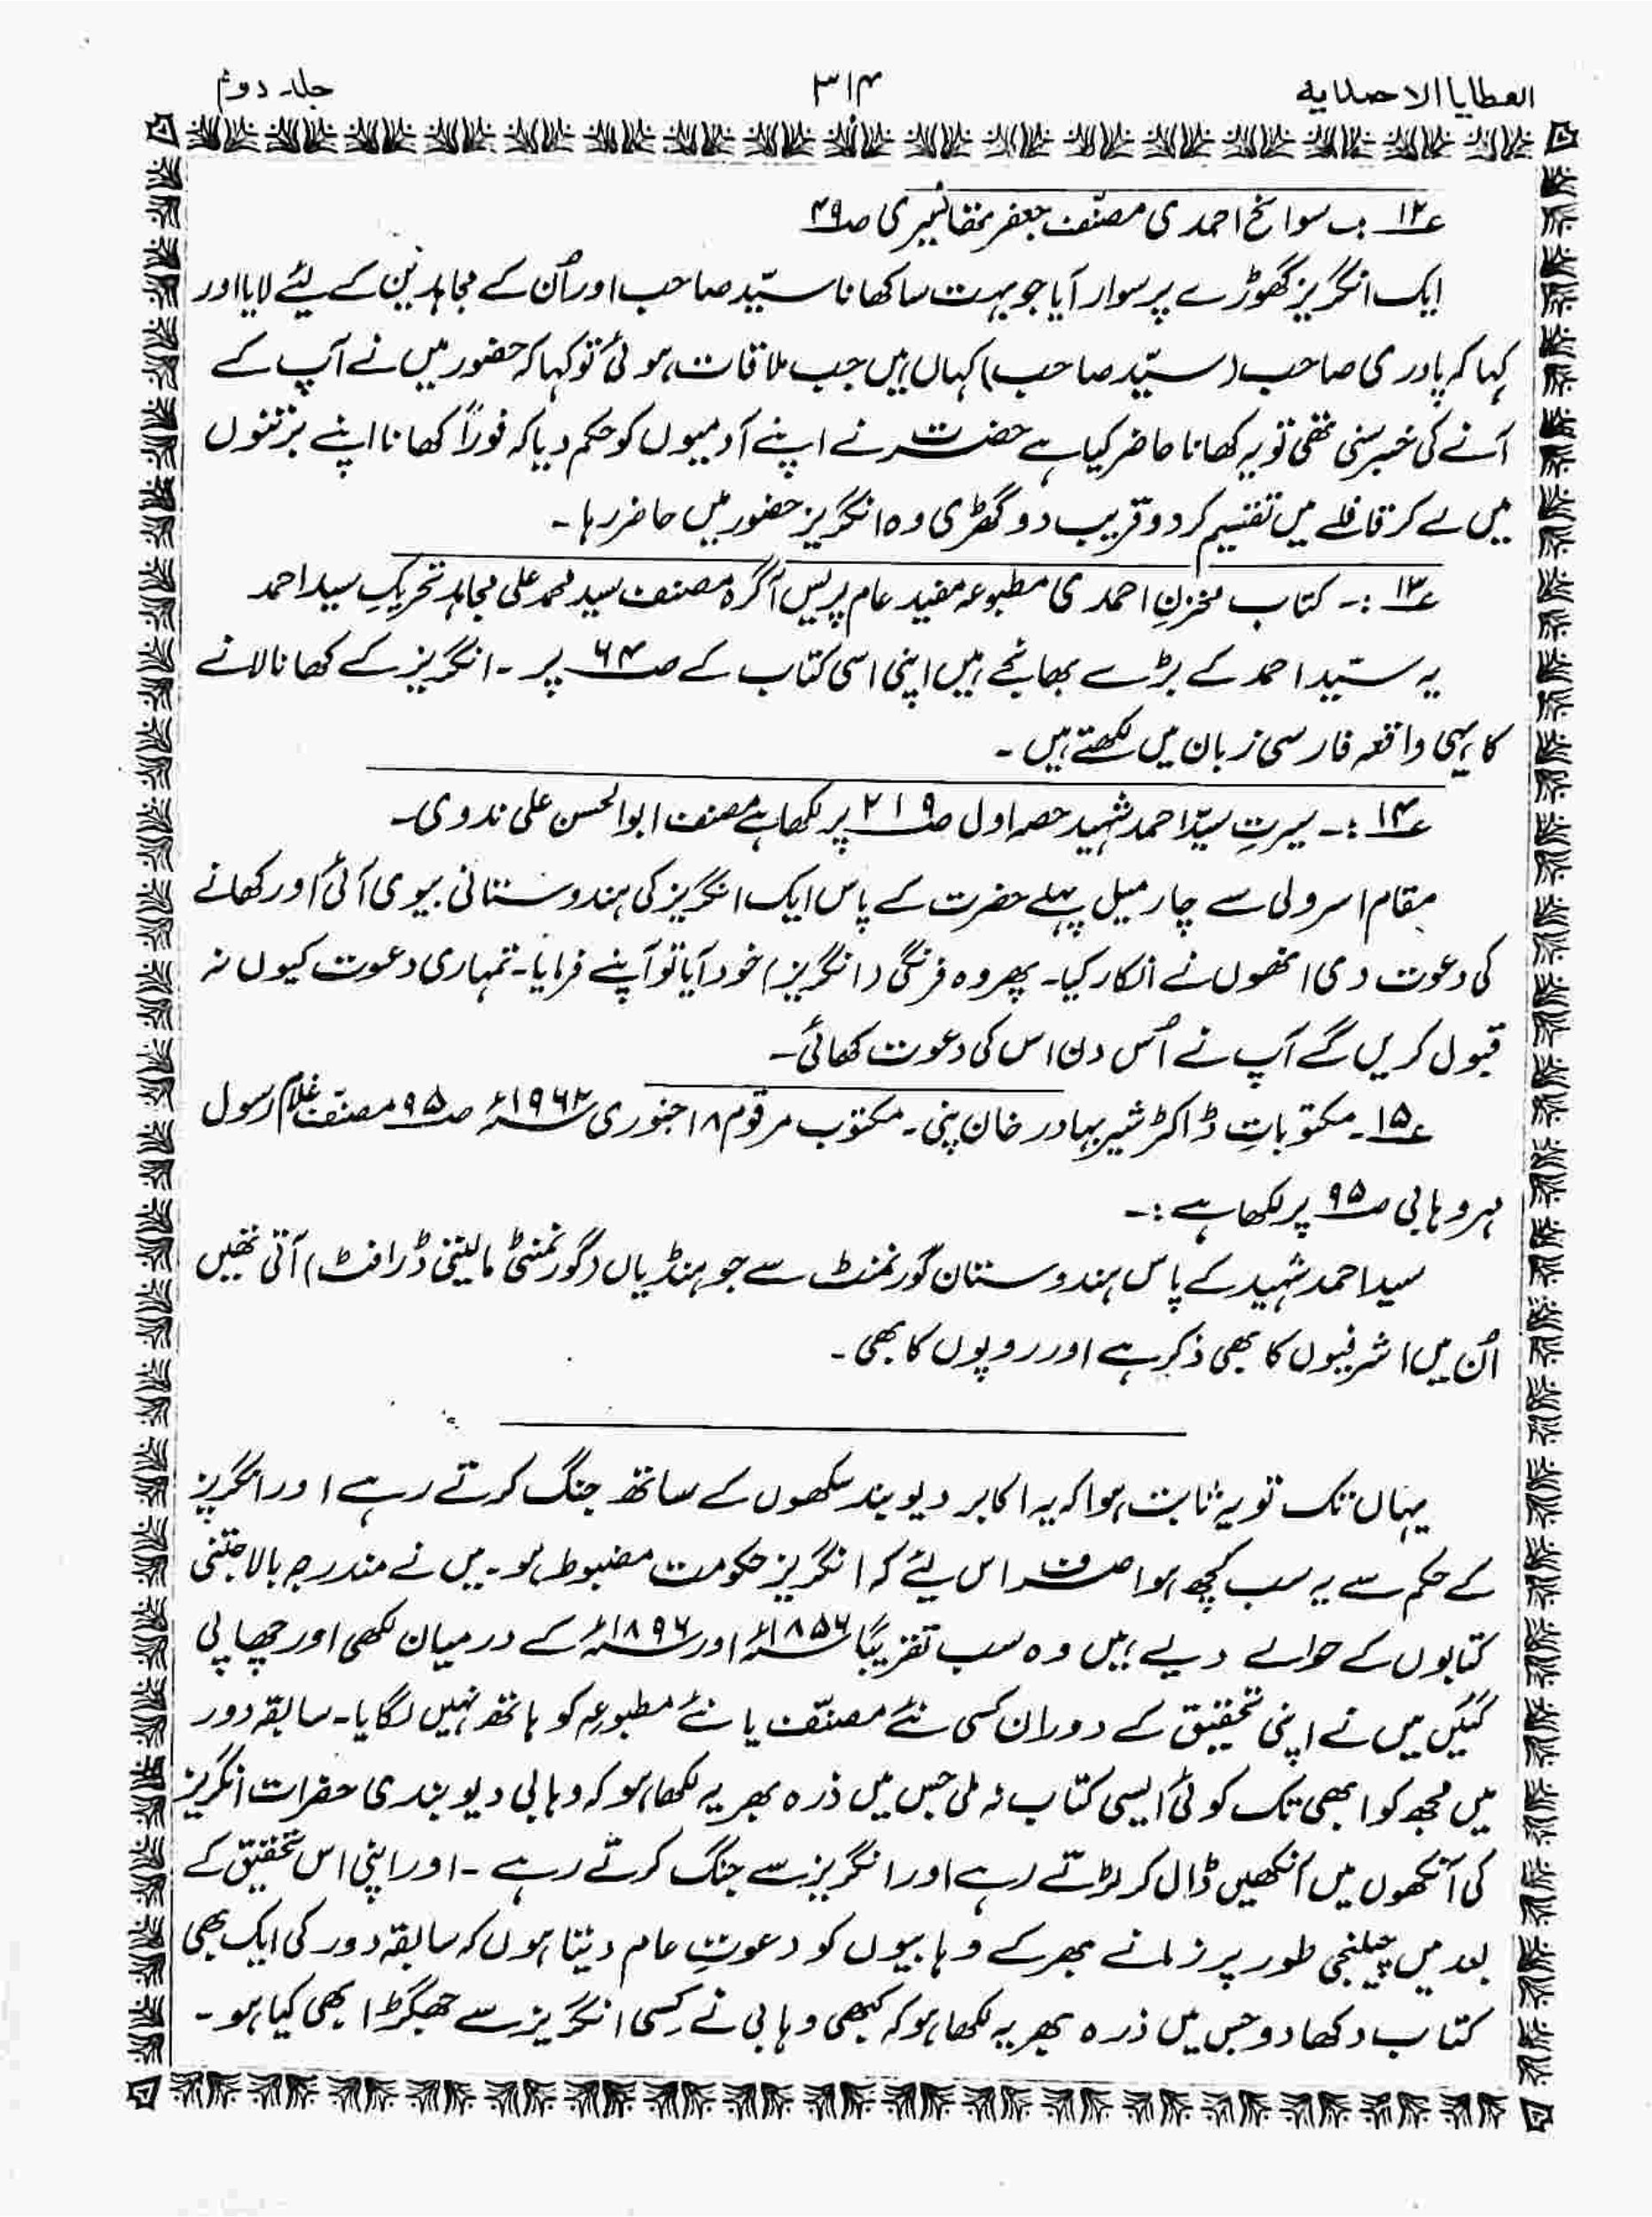 العطایا الاحمدیہ ۳۱۴ جلد دوم
۱۲؎ :۔ سوانح احمدی مصنّف جعفر تھانیسری صـ۴۹
ایک انگریز گھوڑے پر سوار آیا جو بہت سا کھانا سیّد صاحب اور اُن کے مجاہدین کے لئے لایا اور
کہا کہ پادری صاحب (سیّد صاحب) کہاں ہیں جب ملاقات ہوئی تو کہا کہ حضور میں نے آپ کے
آنے کی خبر سنی تھی تو یہ کھانا حاضر کیا ہے حضرت نے اپنے آدمیوں کو حکم دیا کہ فوراً کھانا اپنے برتنوں
میں لے کر قافلے میں تقسیم کر دو قریب دو گھڑی وہ انگریز حضور میں حاضر رہا ۔
۱۳؎ :۔ کتاب مخزنِ احمدی مطبوعہ مفید عام پریس آگرہ مصنف سید محمد علی مجاہد تحریکِ سید احمد
یہ سیّد احمد کے بڑے بھانجے ہیں اپنی اسی کتاب کے صـ۶۴ پر ۔ انگریز کے کھانا لانے
کا یہی واقعہ فارسی زبان میں لکھتے ہیں ۔
۱۴؎ :۔ سیرتِ سیّد احمد شہید حصہ اول صـ۲۱۹ پر لکھا ہے مصنف ابوالحسن علی ندوی۔
مقام اسرولی سے چار میل پہلے حضرت کے پاس ایک انگریز کی ہندوستانی بیوی آئی اور کھانے
کی دعوت دی انھوں نے انکار کیا۔ پھر وہ فرنگی (انگریز) خود آیا تو آپنے فرمایا۔ تمہاری دعوت کیوں نہ
قبول کریں گے آپ نے اُس دن اس کی دعوت کھائی۔
۱۵؎۔ مکتوباتِ ڈاکٹر شیر بہادر خان پنی۔ مکتوب مرقوم ۱۸ جنوری ۱۹۶۲ء صـ۹۵ مصنّف غلام رسول
مہر وہابی صـ۹۵ پر لکھا ہے :۔
سید احمد شہید کے پاس ہندوستان گورنمنٹ سے جو ہنڈیاں (گورنمنٹی مالیتی ڈرافٹ) آتی تھیں
اُن میں اشرفیوں کا بھی ذکر ہے اور روپوں کا بھی ۔
یہاں تک تو یہ ثابت ہوا کہ یہ اکابر دیوبند سکھوں کے ساتھ جنگ کرتے رہے اور انگریز
کے حکم سے یہ سب کچھ ہوا صرف اس لئے کہ انگریز حکومت مضبوط ہو۔ میں نے مندرجہ بالا جتنی
کتابوں کے حوالے دیے ہیں وہ سب تقریبًا ۱۸۵۶ء اور ۱۸۹۶ء کے درمیان لکھی اور چھاپی
گئیں میں نے اپنی تحقیق کے دوران کسی نئے مصنّف یا نئے مطبوعہ کو ہاتھ نہیں لگایا۔ سابقہ دور
میں مجھ کو ابھی تک کوئی ایسی کتاب نہ ملی جس میں ذرہ بھر یہ لکھا ہو کہ وہابی دیوبندی حضرات انگریز
کی آنکھوں میں آنکھیں ڈال کر لڑتے رہے اور انگریز سے جنگ کرتے رہے ۔ اور اپنی اس تحقیق کے
بعد میں چیلنجی طور پر زمانے بھر کے وہابیوں کو دعوتِ عام دیتا ہوں کہ سابقہ دور کی ایک بھی
کتاب دکھا دو جس میں ذرہ بھر یہ لکھا ہو کہ کبھی وہابی نے کِسی انگریز سے جھگڑا بھی کیا ہو ۔